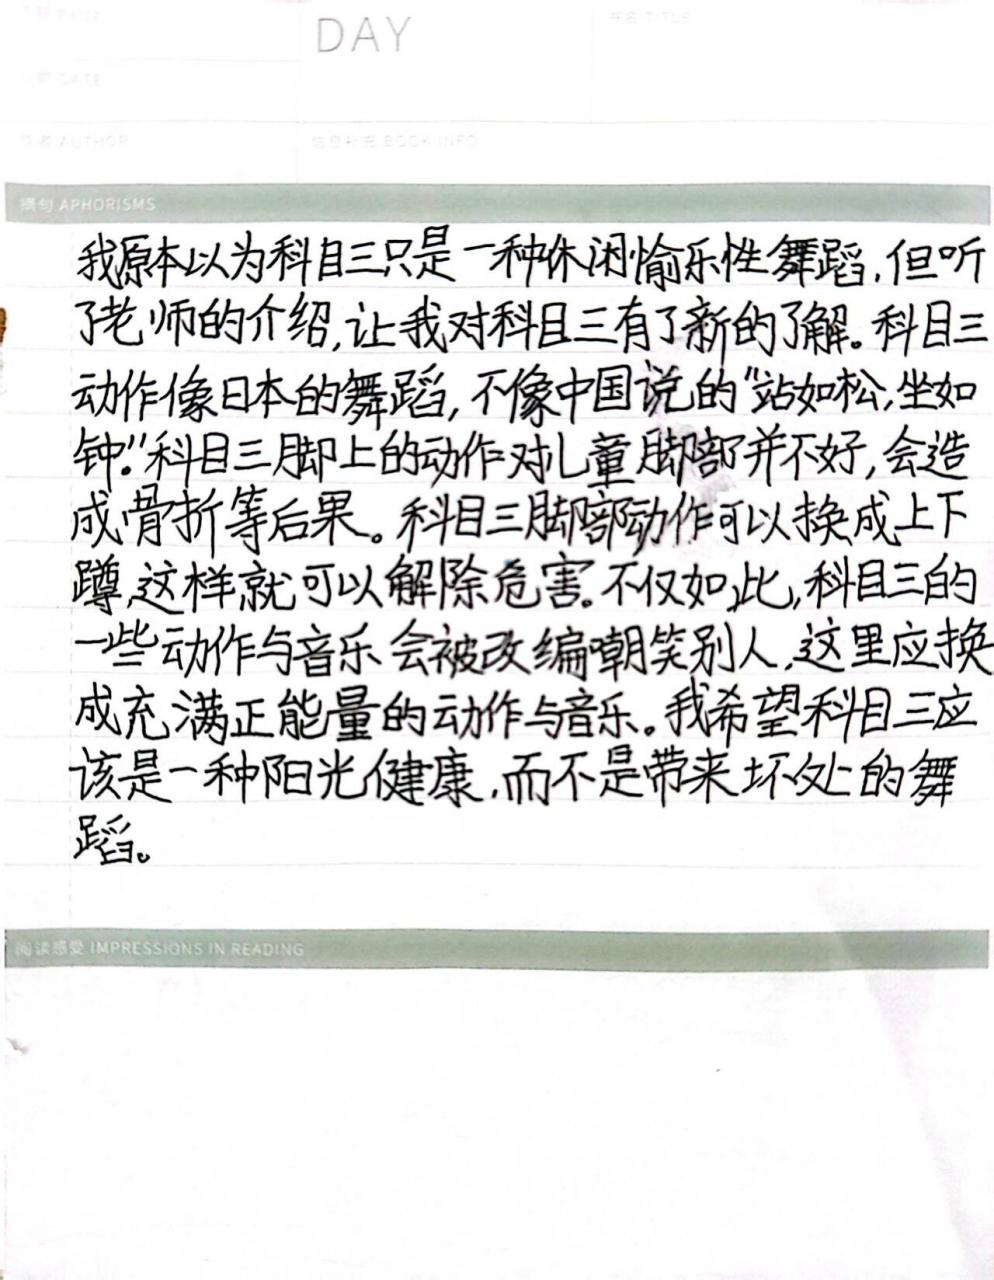 DAY
书名 TITLE
日期 DATE
作者 AUTHOR
信息补充 BOOK INFO
摘句 APHORISMS
我原本以为科目三只是一种休闲愉乐性舞蹈,但听
了老师的介绍,让我对科目三有了新的了解。科目三
动作像日本的舞蹈,不像中国说的“站如松,坐如
钟。”科目三脚上的动作对儿童脚部并不好,会造
成骨折等后果。科目三脚部动作可以换成上下
蹲,这样就可以解除危害。不仅如此,科目三的
一些动作与音乐会被改编嘲笑别人,这里应换
成充满正能量的动作与音乐。我希望科目三应
该是一种阳光健康,而不是带来坏处的舞
蹈。
阅读感受 IMPRESSIONS IN READING